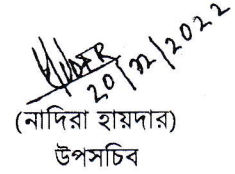 20/12/2022
(নাদিরা হায়দার)
উপসচিব